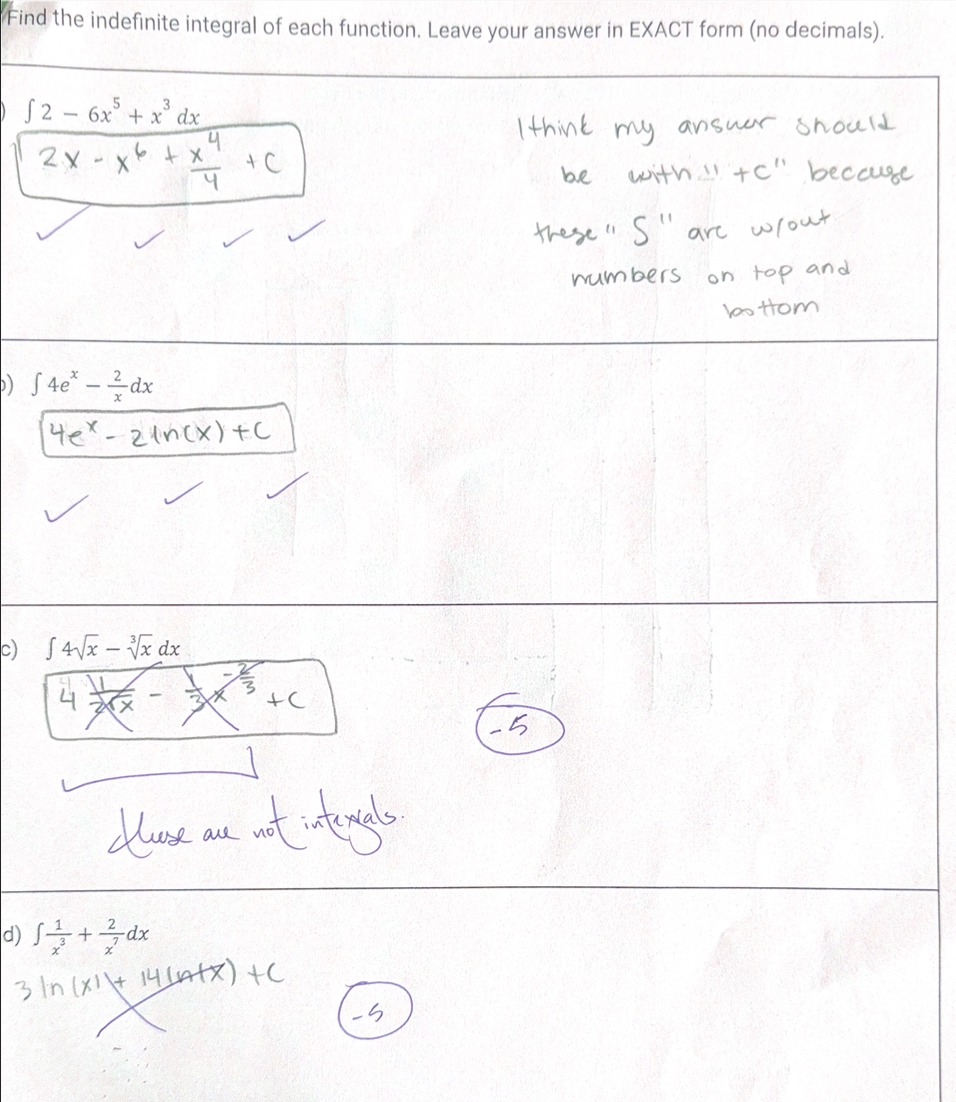 Find the indefinite integral of each function. Leave your answer in EXACT form (no decimals).
) ∫ 2 − 6x⁵ + x³ dx
2x - x⁶ + x⁴/4 + C
I think my answer should
be with "+C" because
these "S" are w/out
numbers on top and
bottom
) ∫ 4eˣ − 2/x dx
4eˣ - 2 ln(x) + C
c) ∫ 4√x − ∛x dx
4 1/2√x - 1/3 x^(-2/3) + C
-5
these are not integrals.
d) ∫ 1/x³ + 2/x⁷ dx
3 ln(x) + 14 ln(x) + C
-5